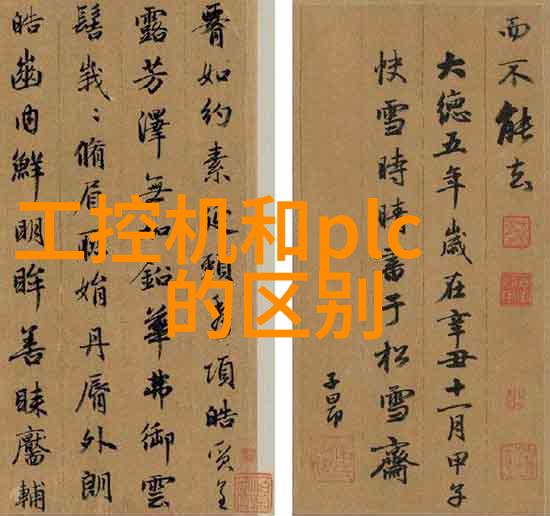 工控机和plc
的区别
而不能去
大德五年歲在辛丑十一月甲子
快雪時晴書于松雪齋
子昂
如約素延頸秀項皓質呈
露芳澤無加鉛華弗御雲
髻峩〻脩眉聯娟丹脣外朗
皓齒内鮮明眸善睞靨輔